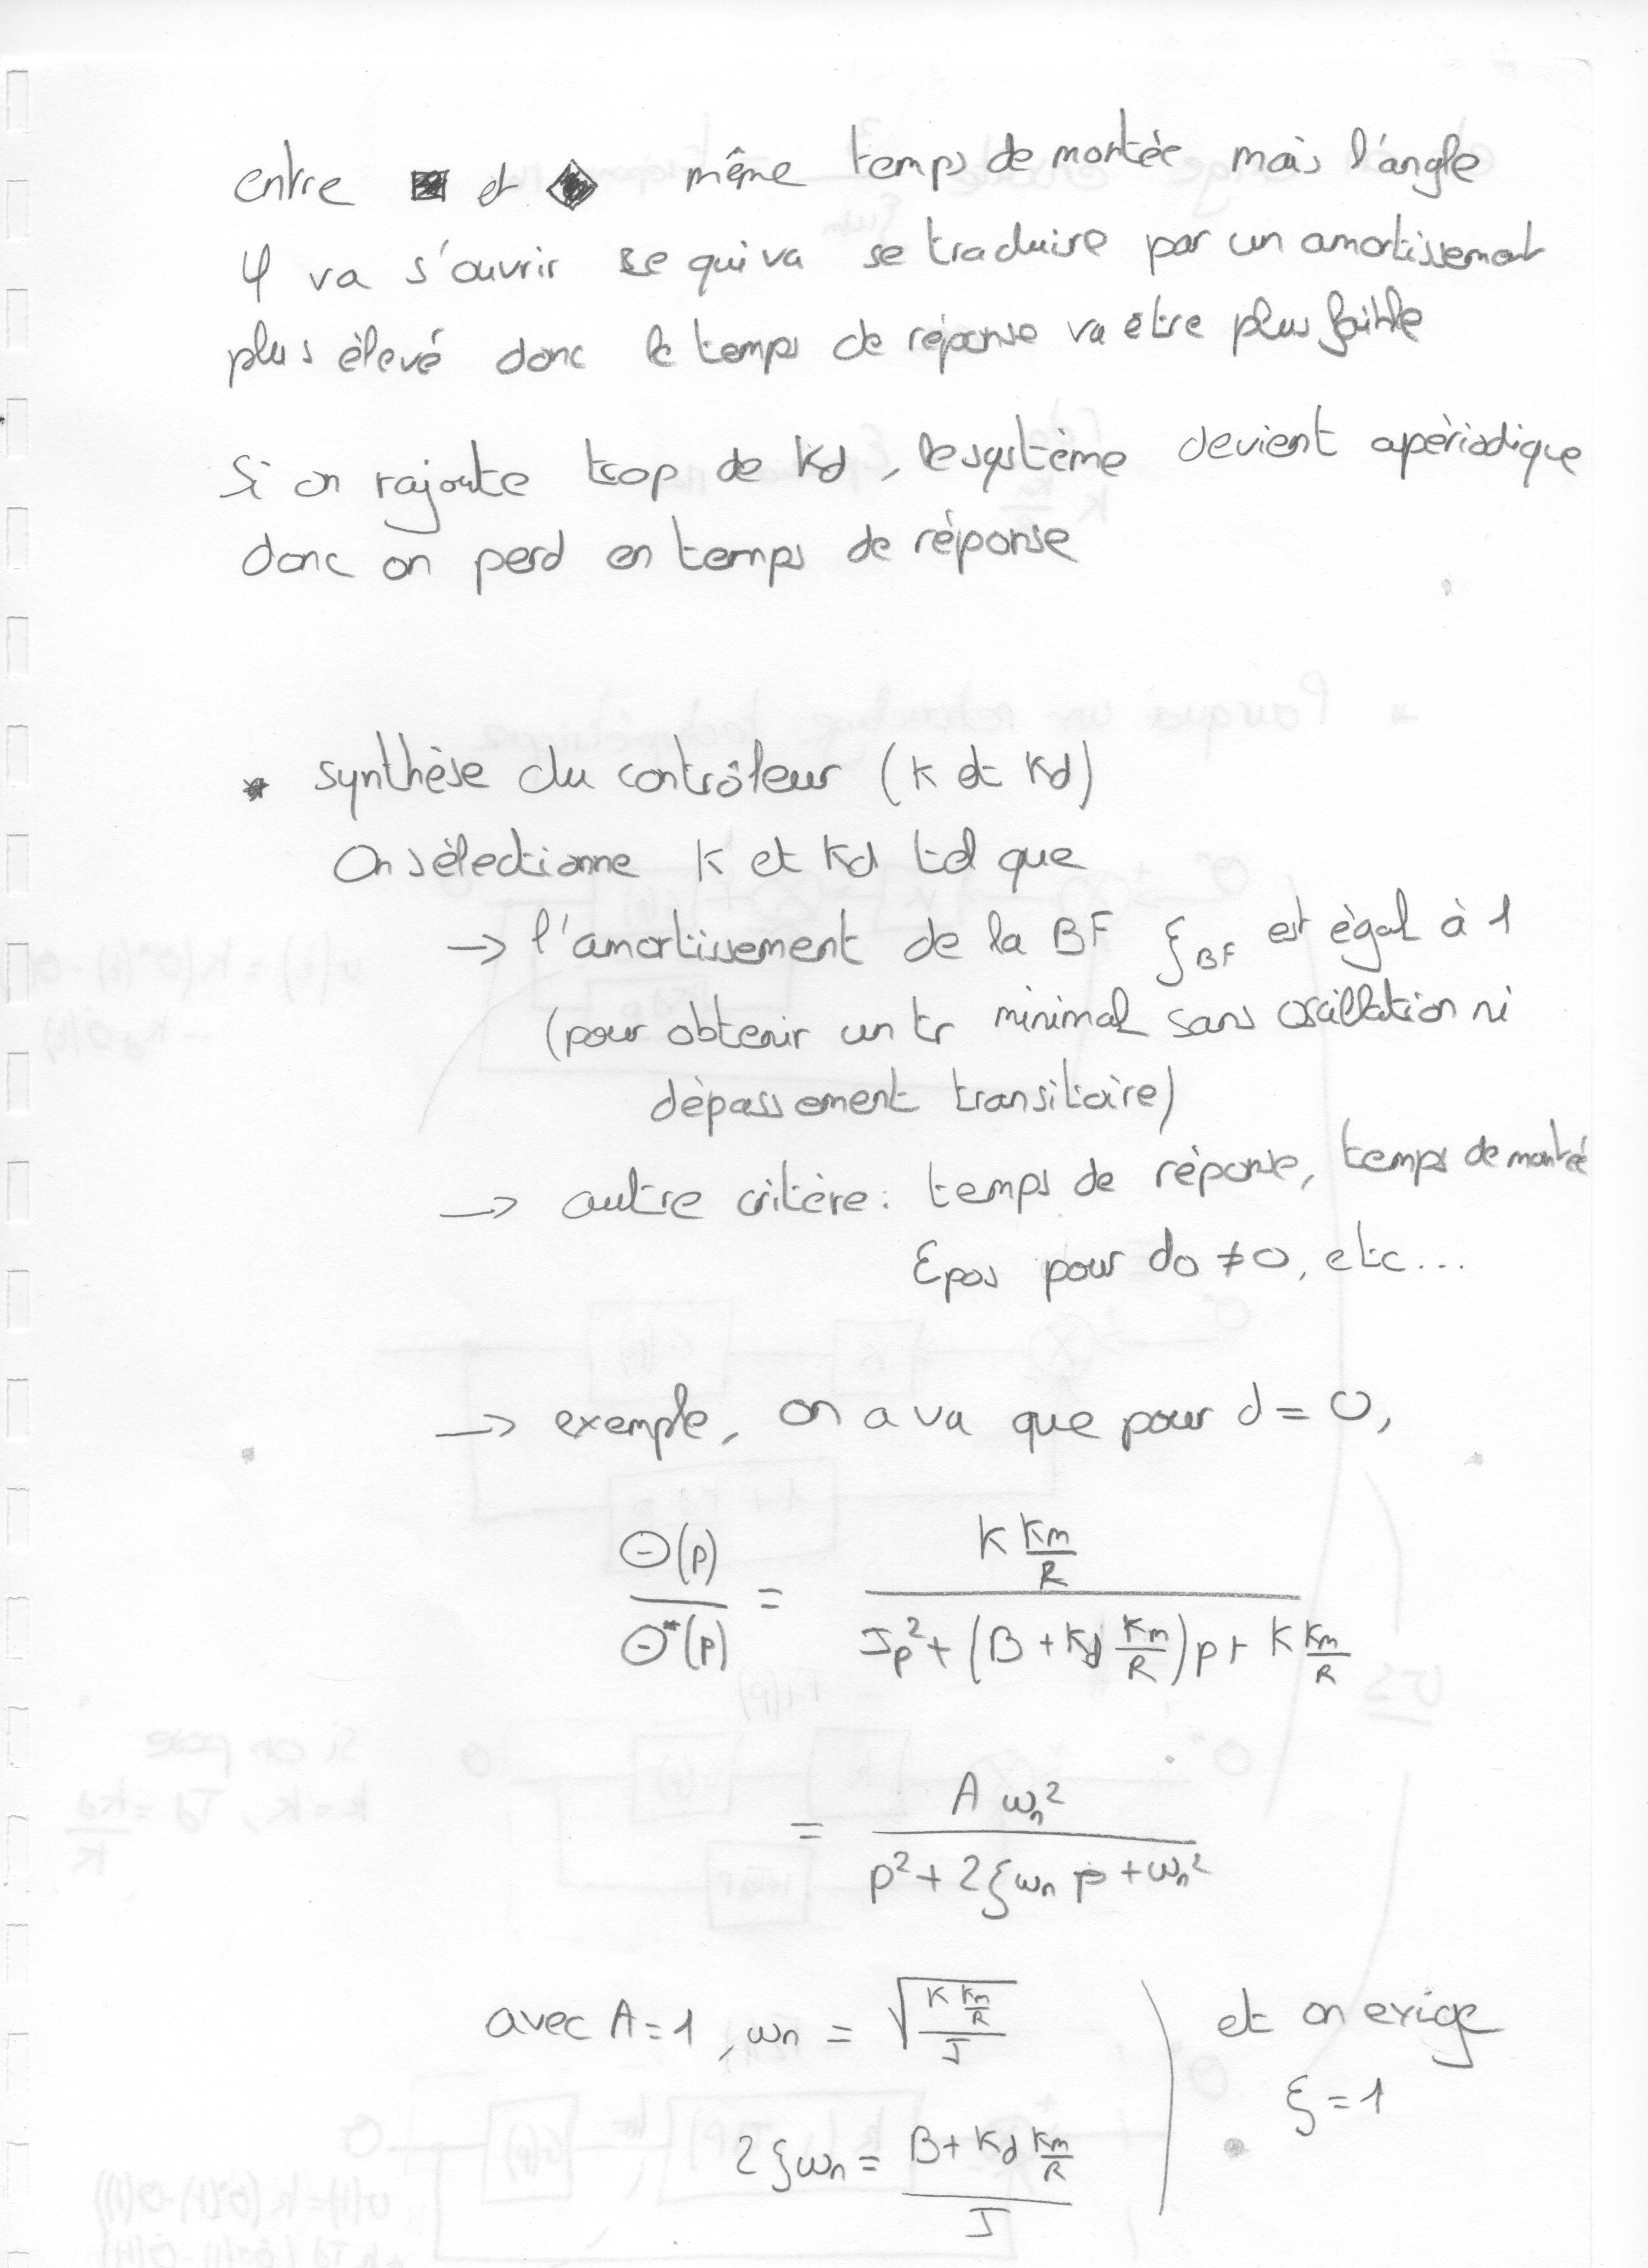 entre ■ et ◆ même temps de montée mais l'angle
φ va s'ouvrir se qui va se traduire par un amortissement
plus élevé donc le temps de réponse va etre plus faible
Si on rajoute trop de Kd, le système devient apériodique
donc on perd en temps de réponse
* synthèse du contrôleur (K et Kd)
On sélectionne K et Kd tel que
→ l'amortissement de la BF ξ_BF est égal à 1
(pour obtenir un tr minimal sans oscillation ni
dépassement transitoire)
→ autre critère : temps de réponse, temps de montée
Epos pour d0 ≠ 0, etc...
→ exemple, on a vu que pour d = 0,
Θ(p)/Θ*(p) = (K Km/R) / (Jp² + (B + Kd Km/R)p + K Km/R)
= A ωn² / (p² + 2ξωn p + ωn²)
avec A = 1, ωn = √((K Km/R)/J) et on exige
ξ = 1
2ξωn = (B + Kd Km/R)/J